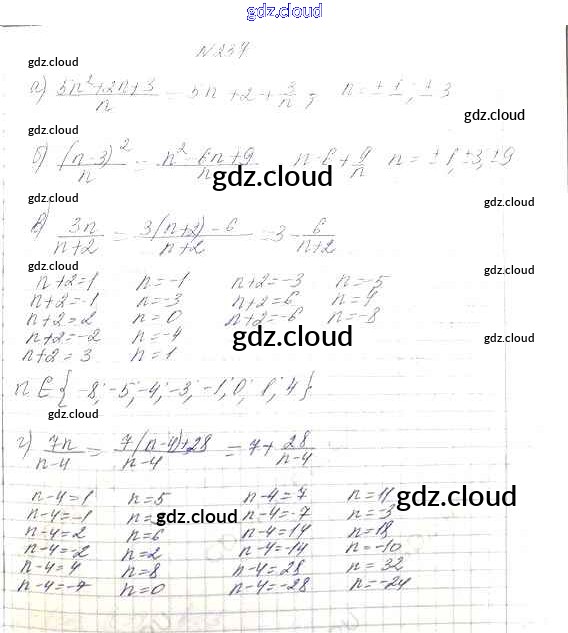 gdz.cloud
№ 237
gdz.cloud
а) (5n²+2n+3)/n = 5n+2+3/n; n = ±1; ±3
gdz.cloud
gdz.cloud
б) (n-3)²/n = (n²-6n+9)/n n-6+9/n n = ±1, ±3, ±9
gdz.cloud
gdz.cloud
gdz.cloud
в) 3n/(n+2) = (3(n+2)-6)/(n+2) = 3-6/(n+2)
gdz.cloud
gdz.cloud
n+2=1 n=-1 n+2=-3 n=-5
n+2=-1 n=-3 n+2=6 n=4
n+2=2 n=0 n+2=-6 n=-8
n+2=-2 n=-4
gdz.cloud
gdz.cloud
n+2=3 n=1
n ∈ {-8; -5; -4; -3; -1; 0; 1; 4}
gdz.cloud
г) 7n/(n-4) = (7(n-4)+28)/(n-4) = 7+28/(n-4)
n-4=1 n=5 n-4=7 n=11
gdz.cloud
n-4=-1 n=3 n-4=-7 n=-3
gdz.cloud
n-4=2 n=6 n-4=14 n=18
n-4=-2 n=2 n-4=-14 n=-10
n-4=4 n=8 n-4=28 n=32
n-4=-4 n=0 n-4=-28 n=-24